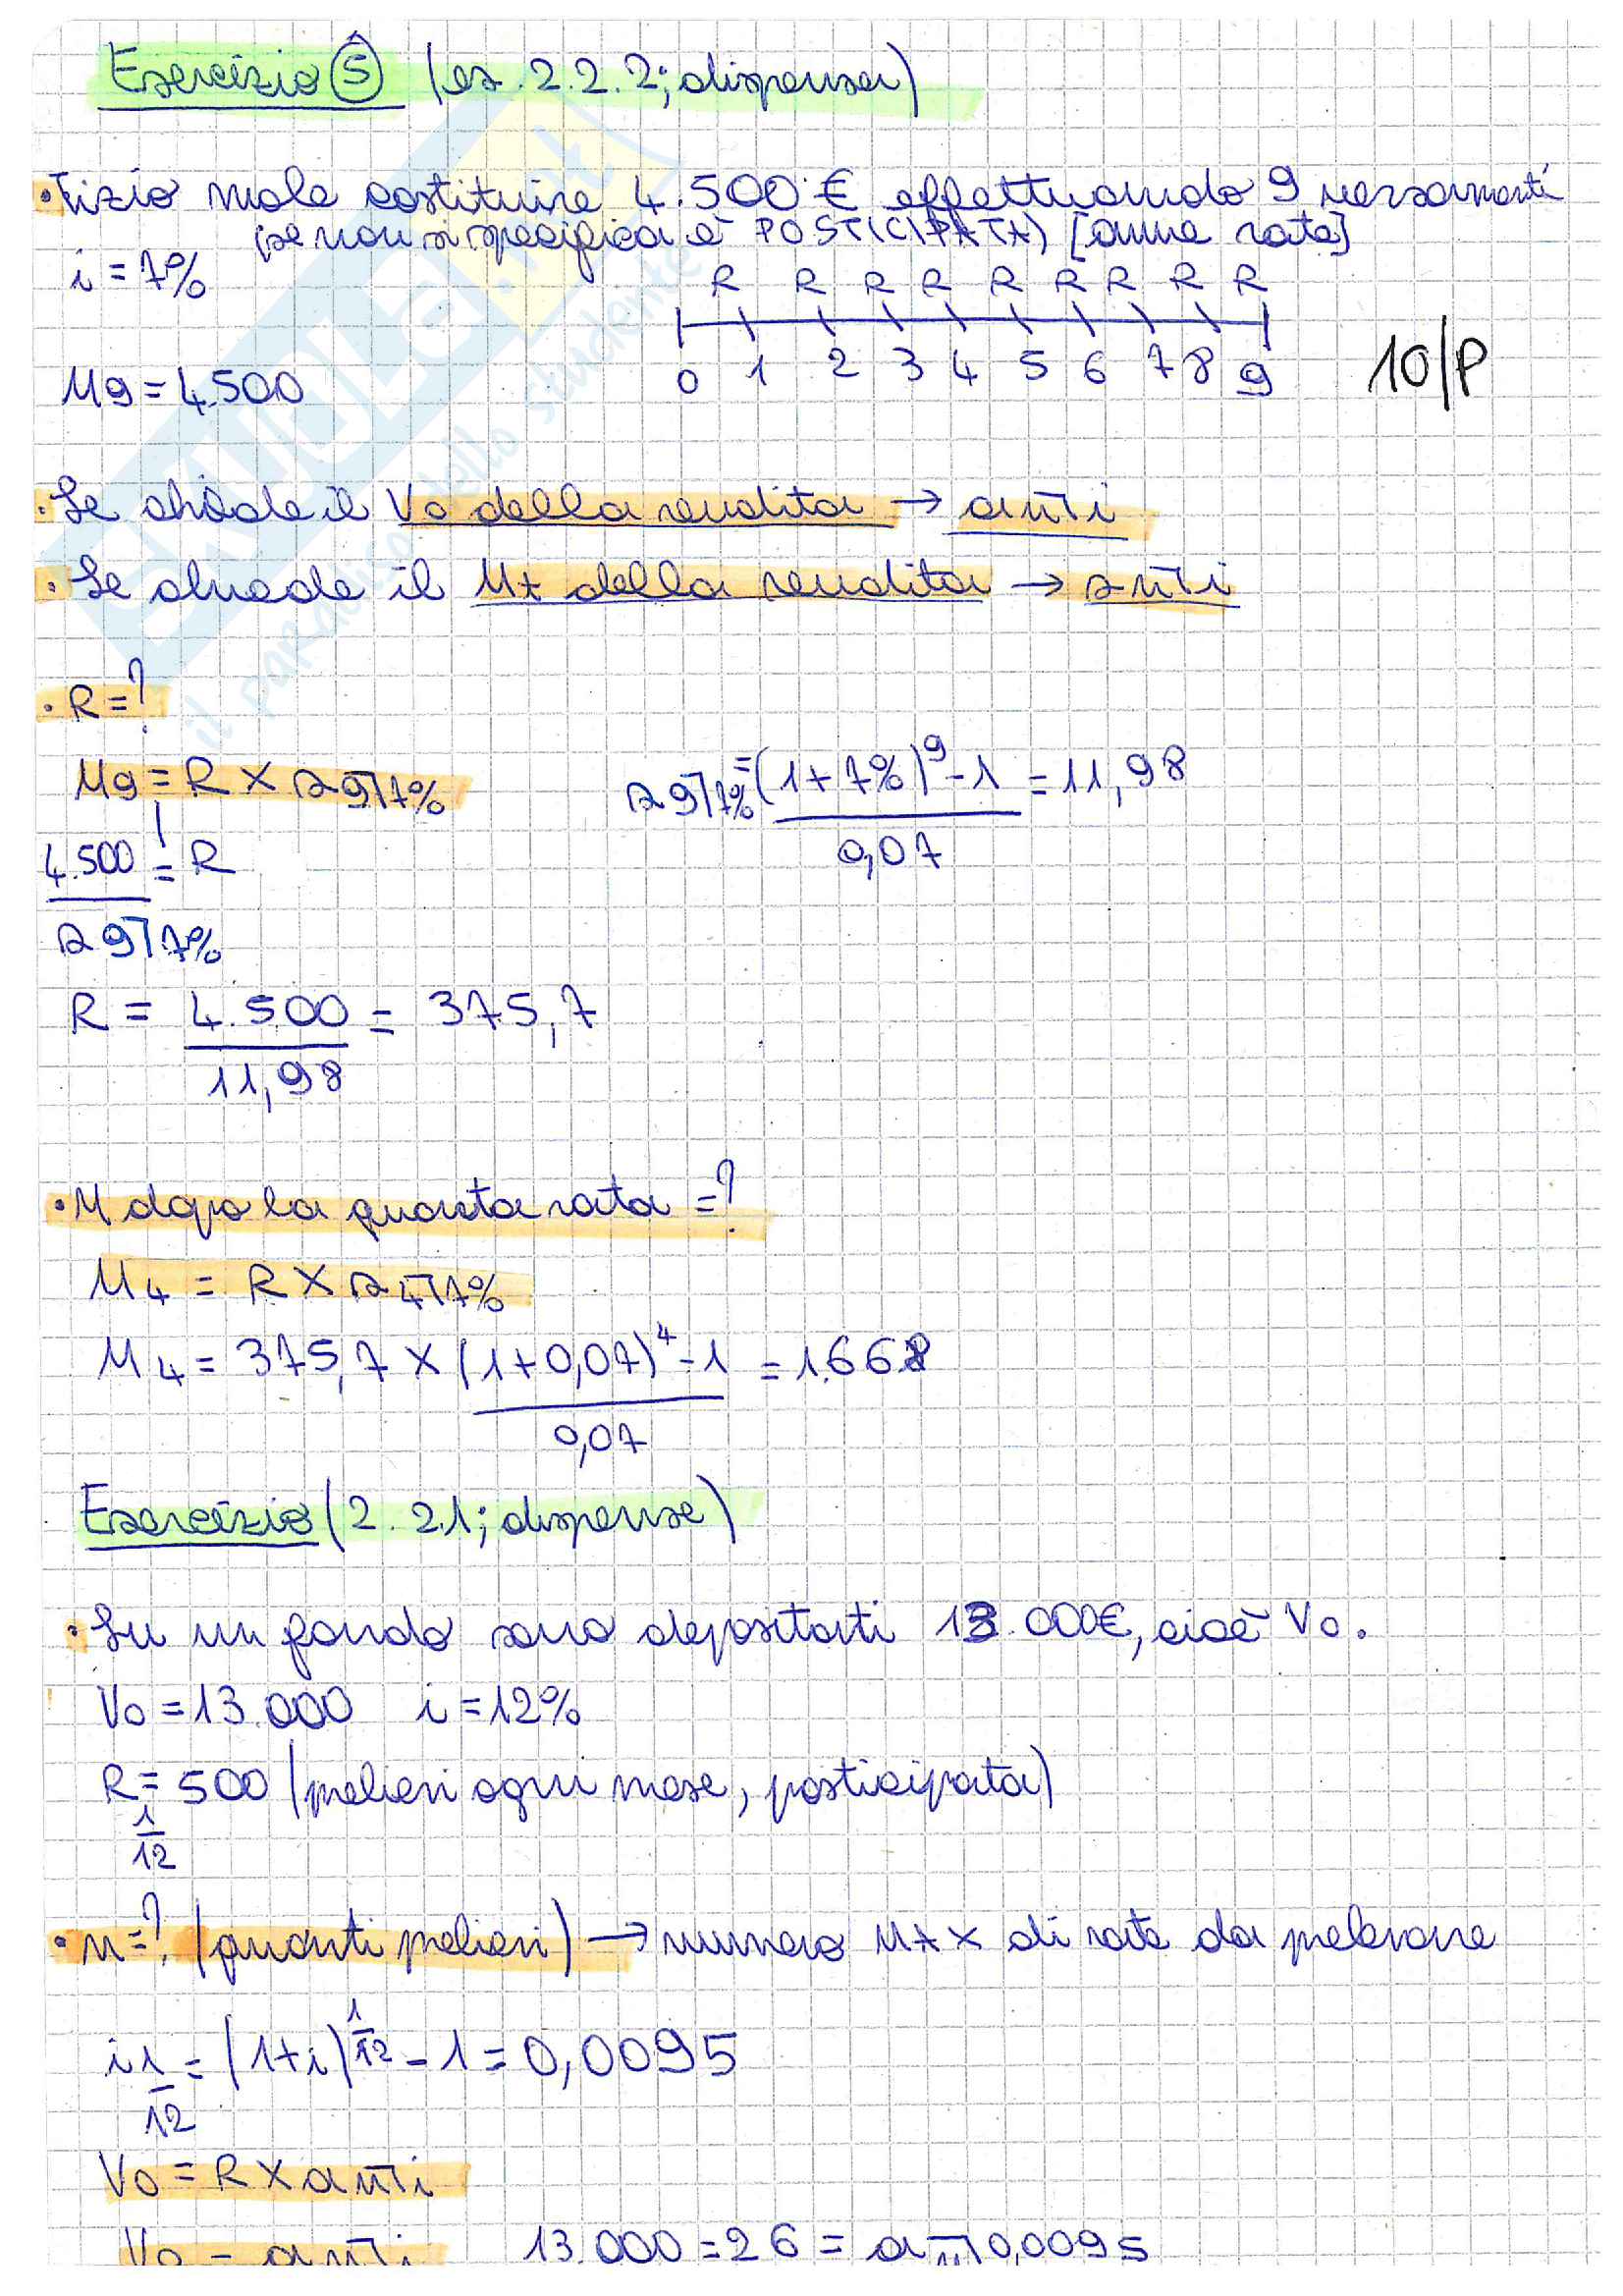 Esercizio 5 (es. 2.2.2; dispensa)
• Tizio vuole costituire 4.500 € effettuando 9 versamenti
(se non si specifica è POSTICIPATA) [annue rate]
i = 7%
R R R R R R R R R
0 1 2 3 4 5 6 7 8 9
10/P
M9 = 4.500
• Se chiede il V0 della rendita → a n̅| i
• Se chiede il Mt della rendita → s n̅| i
• R = ?
M9 = R × s 9̅| 7%
s 9̅| 7% = (1 + 7%)^9 - 1 = 11,98
0,07
4.500 = R
s 9̅| 7%
R = 4.500 = 375,7
11,98
• M dopo la quarta rata = ?
M4 = R × s 4̅| 7%
M4 = 375,7 × (1+0,07)^4 - 1 = 1.668
0,07
Esercizio (2.2.1; dispense)
• Su un fondo sono depositati 13.000€, cioè V0.
V0 = 13.000 i = 12%
R = 500 (prelievi ogni mese, posticipata)
1/12
• n = ? (quanti prelievi) → numero MAX di rate da prelevare
i 1/12 = (1+i)^1/12 - 1 = 0,0095
V0 = R × a n̅| i
V0 = a n̅| i 13.000 = 26 = a n̅| 0,0095
SKUOLA.it
il paradiso dello studente